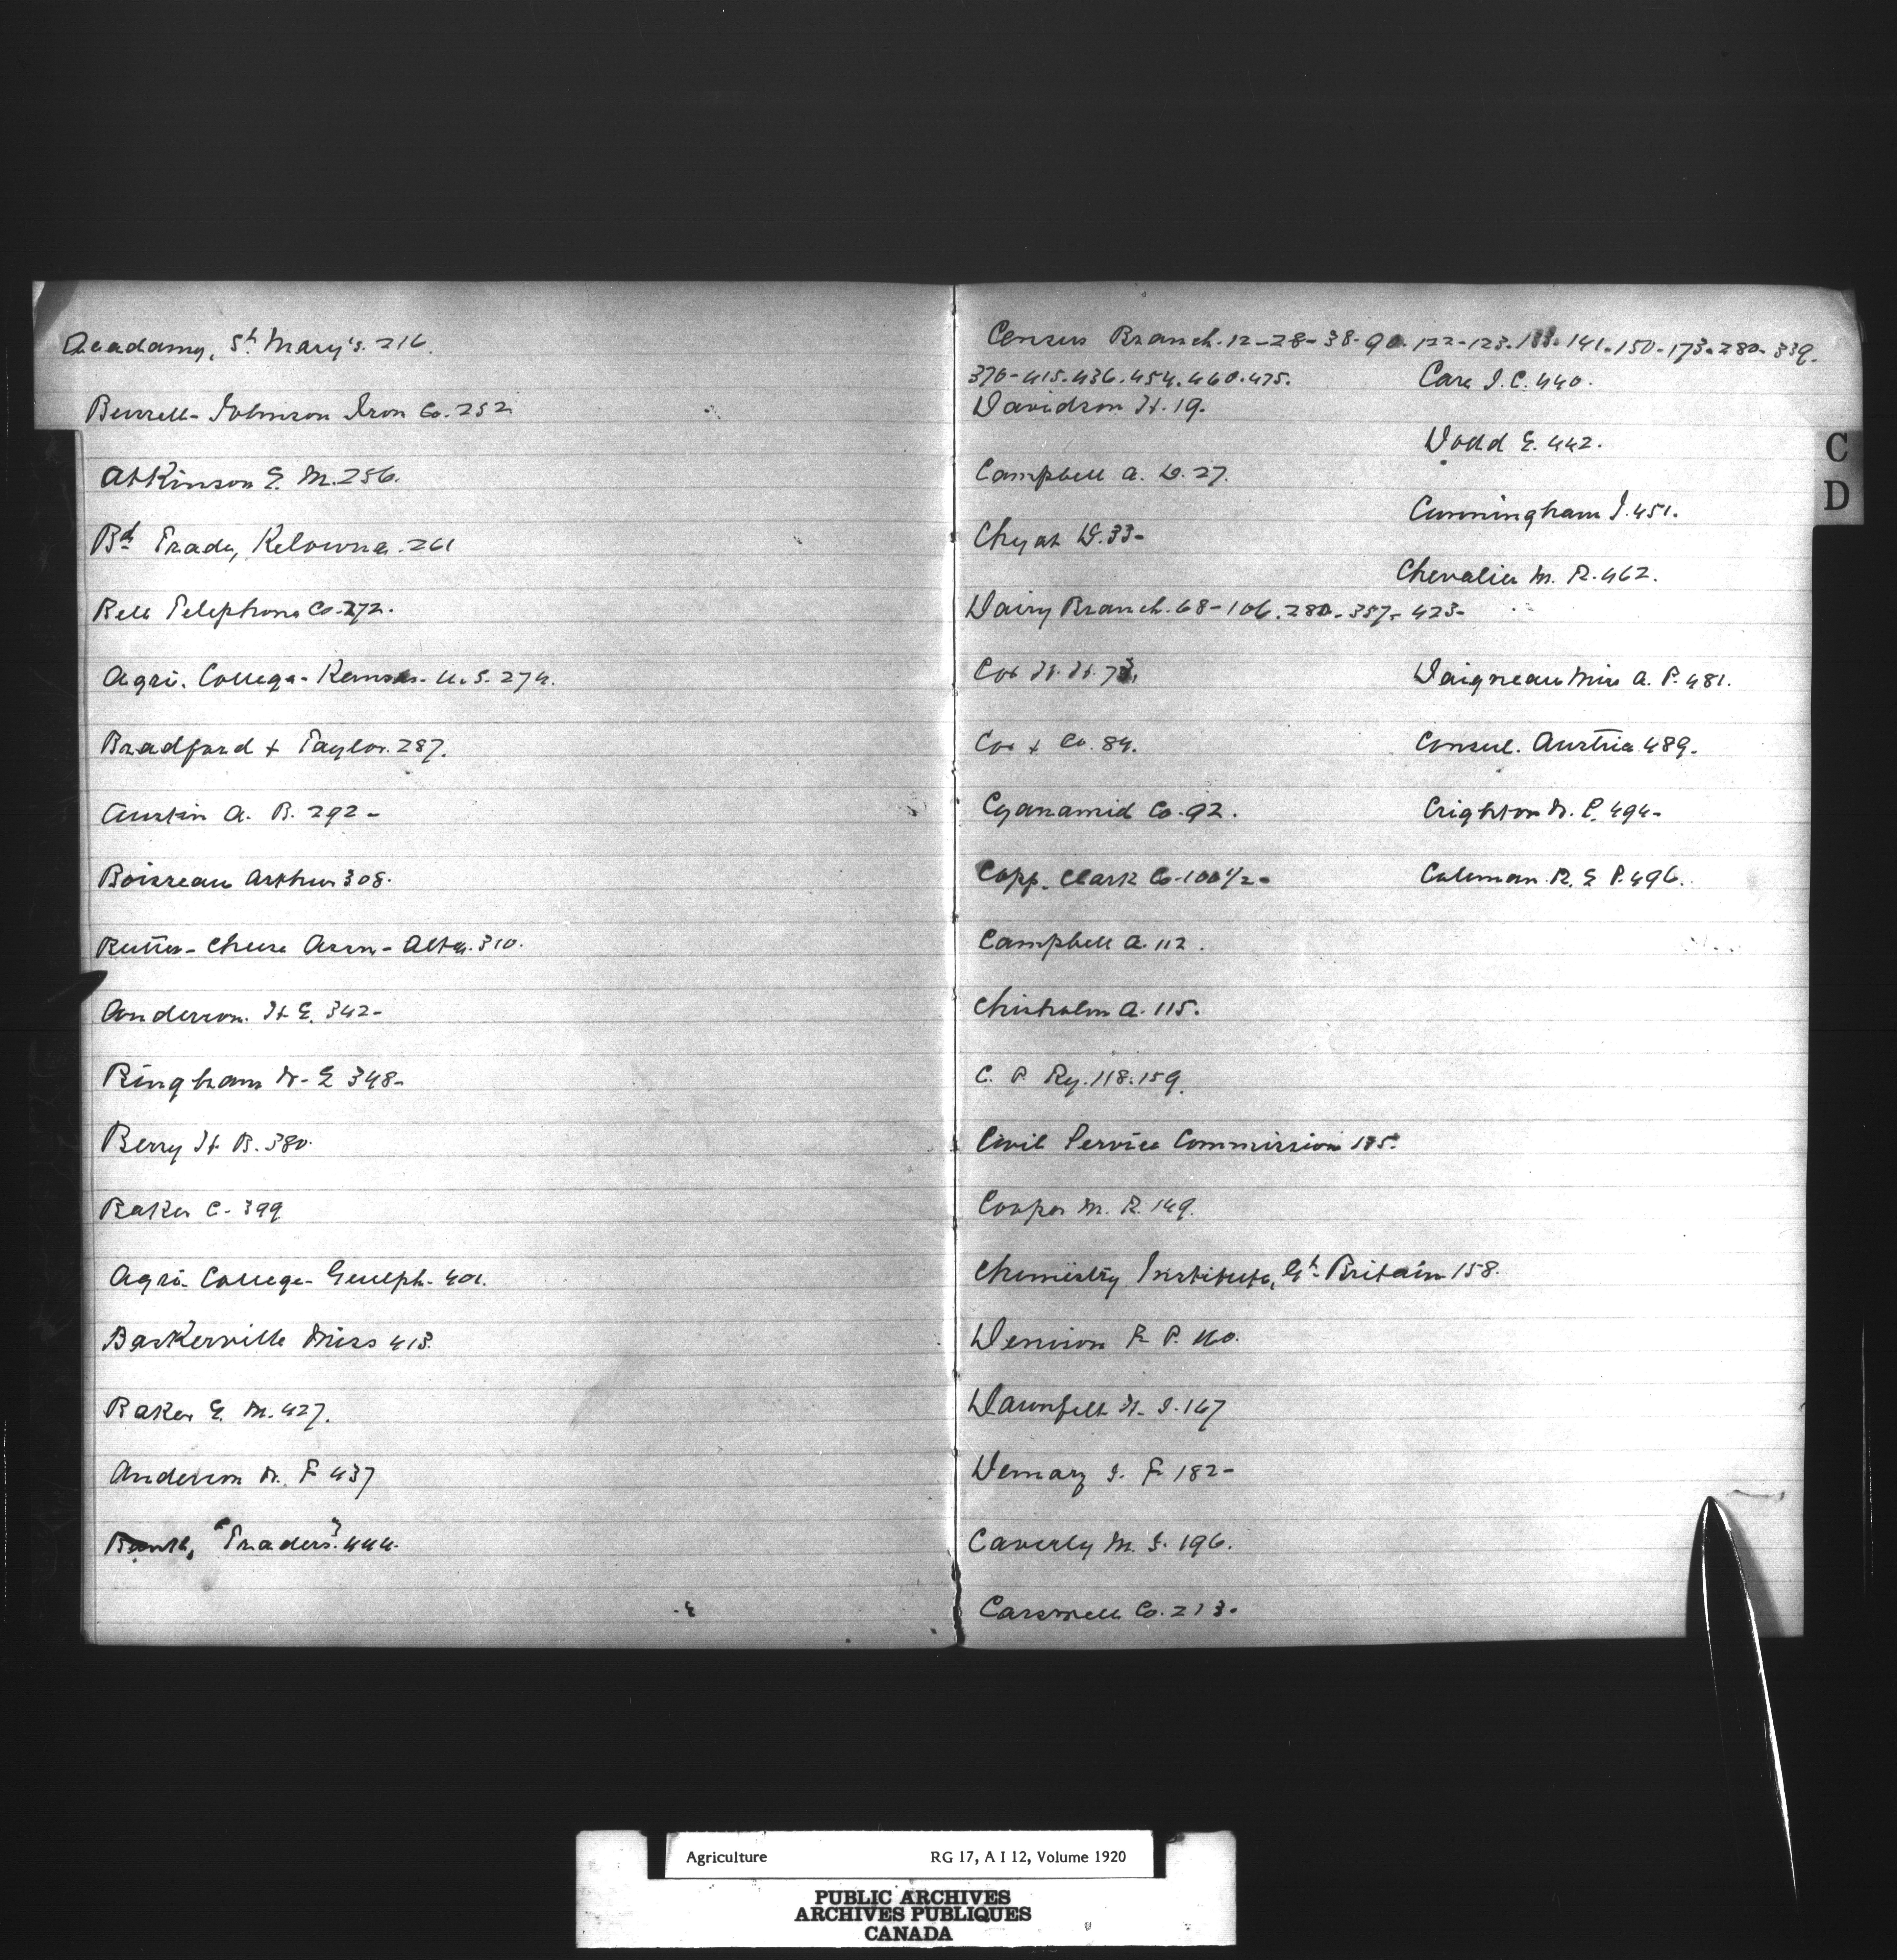 Acadamy, St Mary's. 216.
Burrell-Johnson Iron Co. 252
Atkinson E. M. 256.
Bd Trade, Kelowna. 261
Bell Telephone Co. 272.
Agri. College - Kansas - U. S. 274.
Bradford & Taylor. 287.
Austin A. B. 292-
Boisseau Arthur 308.
Butter-Cheese Assn - Alta. 310.
Anderson. H E. 342-
Bingham W. E 348-
Berry H B. 380.
Baker C. 399
Agri College - Guelph. 401.
Baskerville Miss 413.
Baker E. M. 427.
Anderson W. F 437
Bank, "Traders" 444.
Census Branch. 12-28-38-90. 122-123. 133. 141. 150-173. 280. 339.
370-415. 436. 454. 460. 475.
Davidson H. 19.
Campbell A. D. 27.
Chyat D. 33-
Dairy Branch. 68-106. 280. 357. 423-
Cox H. H. 73.
Cox & Co. 84.
Cyanamid Co. 92.
Copp. Clark Co. 100 1/2.
Campbell A. 112.
Chisholm A. 115.
C. P. Ry. 118. 159.
Civil Service Commission 135.
Cooper M. R. 149.
Chemistry Institute, Gt Britain 158.
Denison F. P. 160.
Daunfelt H. J. 167
Demary J. F 182-
Caverly M. J. 196.
Carswell Co. 213.
Care J. C. 440.
Dodd E. 442.
Cunningham J. 451.
Chevalier M. R. 462.
Daigneau Miss A. P. 481.
Consul. Austria 489.
Crighton W. P. 494-
Coleman. R. E P. 496.
C
D
Agriculture RG 17, A I 12, Volume 1920
PUBLIC ARCHIVES
ARCHIVES PUBLIQUES
CANADA